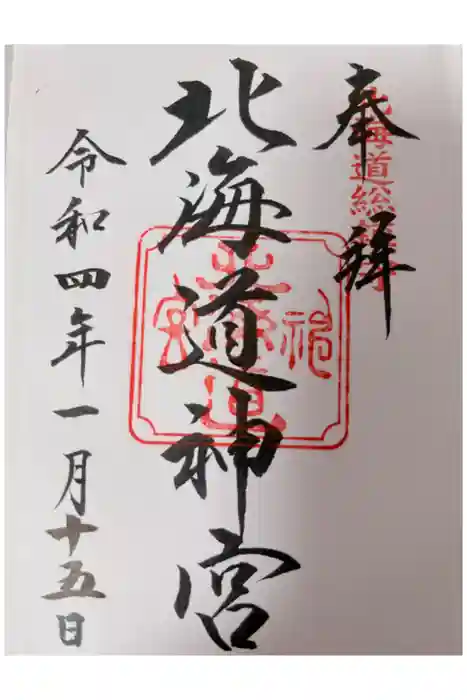 奉拝
北海道総鎮守
北海道神宮
北海道神宮
令和四年一月十五日